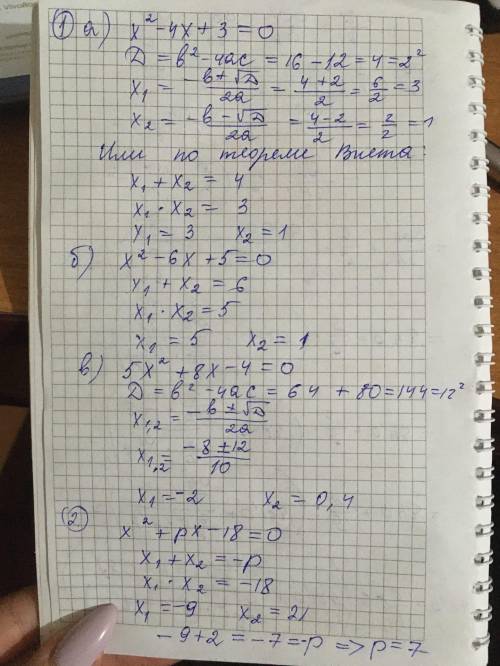 ① а) x² - 4x + 3 = 0
D = b² - 4ac = 16 - 12 = 4 = 2²
x₁ = (-b ± √D)/2a = (4 + 2)/2 = 6/2 = 3
x₂ = (-b - √D)/2a = (4 - 2)/2 = 2/2 = 1
Или по теореме Виета:
x₁ + x₂ = 4
x₁ · x₂ = 3
x₁ = 3 x₂ = 1
б) x² - 6x + 5 = 0
x₁ + x₂ = 6
x₁ · x₂ = 5
x₁ = 5 x₂ = 1
в) 5x² + 8x - 4 = 0
D = b² - 4ac = 64 + 80 = 144 = 12²
x₁,₂ = (-b ± √D)/2a
x₁,₂ = (-8 ± 12)/10
x₁ = -2 x₂ = 0,4
② x² + px - 18 = 0
x₁ + x₂ = -p
x₁ · x₂ = -18
x₁ = -9 x₂ = 2
-9 + 2 = -7 = -p => p = 7